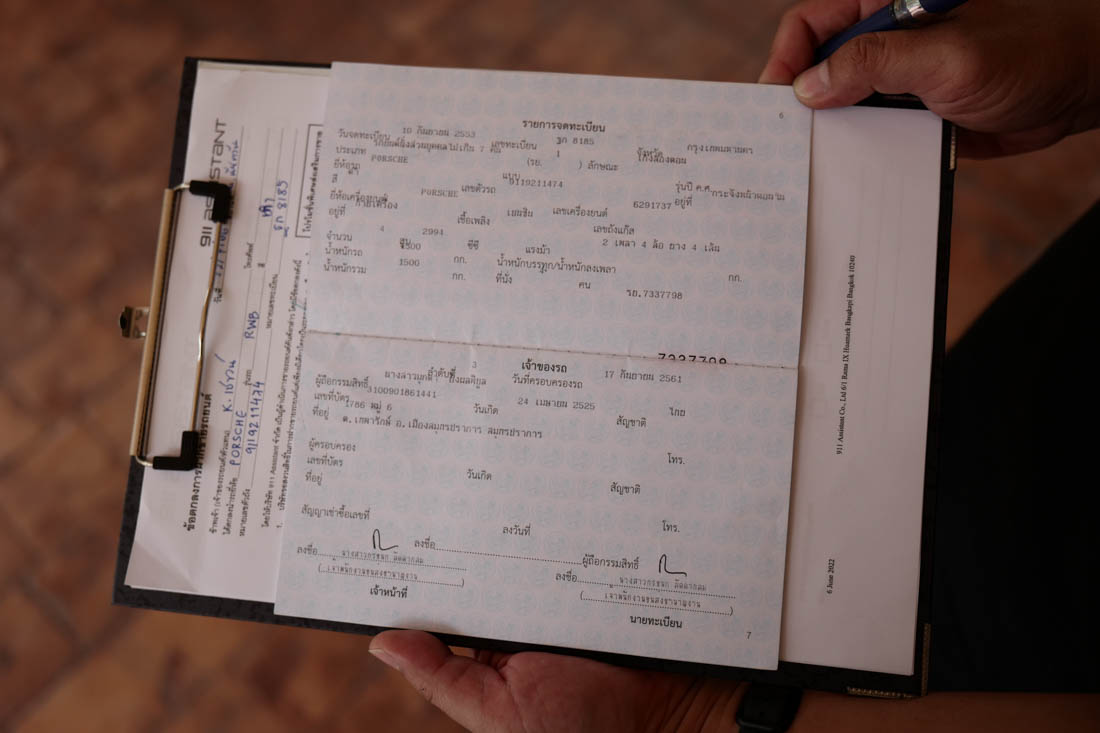 6
รายการจดทะเบียน
วันจดทะเบียน 10 กันยายน 2553 เลขทะเบียน 8185 จังหวัด กรุงเทพมหานคร
ประเภท รถยนต์นั่งส่วนบุคคลไม่เกิน 7 คน (รย. 1 ) ลักษณะ เก๋งสองตอน
ยี่ห้อรถ PORSCHE แบบ รุ่นปี ค.ศ.
สี เลขตัวรถ 9119211474 อยู่ที่
ยี่ห้อเครื่องยนต์ PORSCHE เลขเครื่องยนต์ 6291737
อยู่ที่ ท้ายเครื่อง เชื้อเพลิง เบนซิน เลขถังแก๊ส
จำนวน 4 สูบ 2994 ซีซี แรงม้า 2 เพลา 4 ล้อ ยาง 4 เส้น
น้ำหนักรถ 1500 กก. น้ำหนักบรรทุก/น้ำหนักลงเพลา กก.
น้ำหนักรวม 1500 กก. ที่นั่ง คน
รย.7337798
เจ้าของรถ
ลำดับที่ 3 วันที่ครอบครองรถ 17 กันยายน 2561
ผู้ถือกรรมสิทธิ์
เลขที่บัตร 3100901861441 วันเกิด 24 เมษายน 2525 สัญชาติ ไทย
ที่อยู่ 1786 หมู่ 6
ต.เทพารักษ์ อ.เมืองสมุทรปราการ สมุทรปราการ
โทร.
ผู้ครอบครอง
เลขที่บัตร วันเกิด สัญชาติ
ที่อยู่
โทร.
สัญญาเช่าซื้อเลขที่ ลงวันที่
ลงชื่อ ลงชื่อ ผู้ถือกรรมสิทธิ์ ลงชื่อ
เจ้าหน้าที่
นายทะเบียน
7
911 ASSISTANT
วันที่
ข้อตกลงการฝากขายรถยนต์
PORSCHE RWB
หมายเลขตัวถัง 9119211474
หมายเลขทะเบียน 8185
911 Assistant Co., Ltd 6/1 Rama IX Huamark Bangkapi Bangkok 10240
6 June 2022